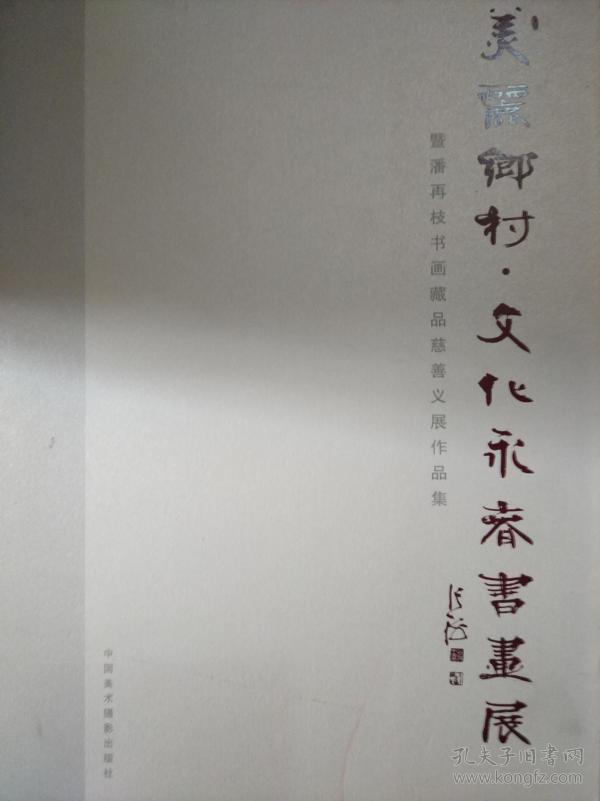 美麗鄉村·文化永春書畫展
暨潘再枝书画藏品慈善义展作品集
中国美术摄影出版社
孔夫子旧书网
www.kongfz.com